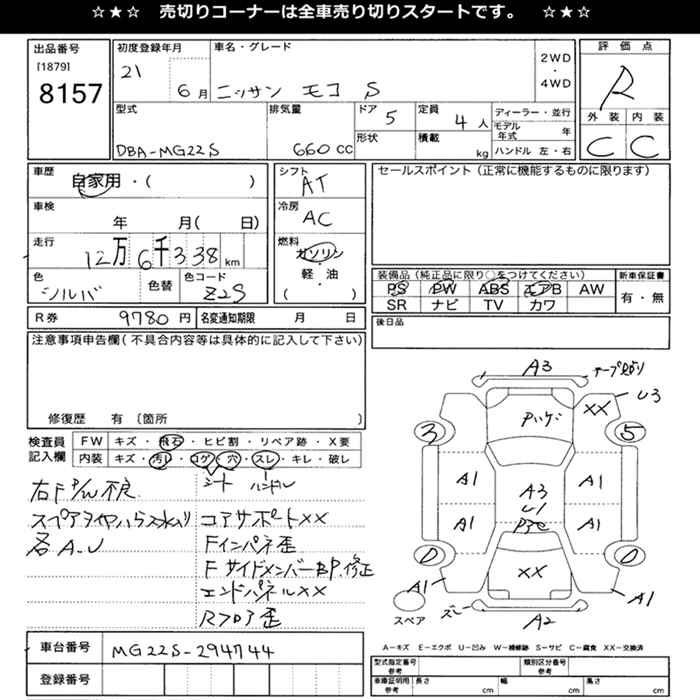 ☆★☆ 売切りコーナーは全車売り切りスタートです。 ☆★☆
出品番号
[1879]
8157
初度登録年月
21
6月
車名・グレード
ニッサン モコ S
2WD
・
4WD
評価点
R
外装 内装
C C
型式
DBA-MG22S
排気量
660 CC
ドア
5
形状
定員
4人
積載
kg
ディーラー・並行
モデル年式 年
ハンドル 左・右
車歴
自家用・( )
車検
年 月( 日)
走行
12万6千338km
色
シルバ
色替
色コード
Z2S
シフト
AT
冷房
AC
燃料
ガソリン
・
軽・油
( )
セールスポイント(正常に機能するものに限ります)
装備品(純正品に限り○をつけてください)
PS PW ABS エアB AW
SR ナビ TV カワ
新車保証書
有・無
R券 9780円
名変通知期限 月 日
後日品
注意事項申告欄(不具合内容等は具体的に記入して下さい)
修復歴 有 〔箇所 〕
検査員記入欄
FW キズ・飛石・ヒビ割・リペア跡・X要
内装 キズ・汚レ・コゲ・穴・スレ・キレ・破レ
シート ハンドル
右F P/W不良
スペアタイヤハウス水入り
各A.U
コアサポートXX
Fインパネ歪
FサイドメンバーBP.修正
エンドパネルXX
Rフロア歪
車台番号 MG22S-294744
登録番号
A3
XX
U3
3
5
A1
A1
A3
U1
A1
A1
XX
A1
A1
A2
スペア
A=キズ E=エクボ U=凹み W=補修跡 S=サビ C=腐食 XX=交換済
型式指定番号
参考
類別区分番号
参考
車庫証明用
参考
長さ cm 幅 cm 高さ cm